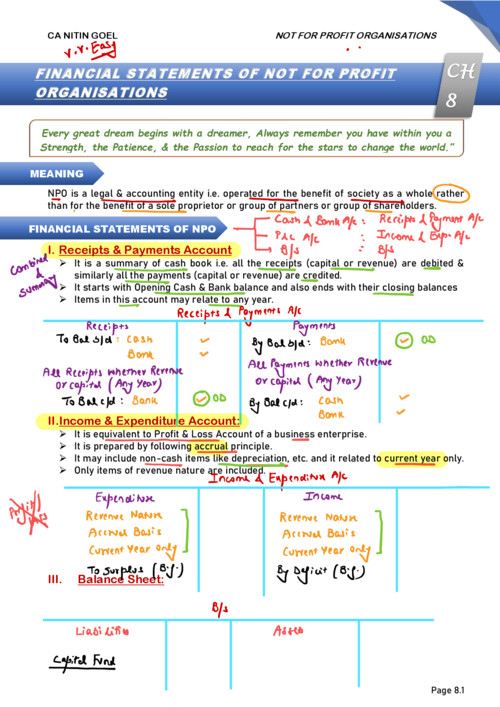 CA NITIN GOEL
NOT FOR PROFIT ORGANISATIONS
v.v. Easy
FINANCIAL STATEMENTS OF NOT FOR PROFIT
ORGANISATIONS
CH
8
Every great dream begins with a dreamer, Always remember you have within you a
Strength, the Patience, & the Passion to reach for the stars to change the world.”
MEANING
NPO is a legal & accounting entity i.e. operated for the benefit of society as a whole rather
than for the benefit of a sole proprietor or group of partners or group of shareholders.
FINANCIAL STATEMENTS OF NPO
Cash & Bank A/c : Receipts & Payment A/c
P&L A/c : Income & Exp. A/c
B/s : B/s
I. Receipts & Payments Account
Combined & Summary
➤ It is a summary of cash book i.e. all the receipts (capital or revenue) are debited &
similarly all the payments (capital or revenue) are credited.
➤ It starts with Opening Cash & Bank balance and also ends with their closing balances
➤ Items in this account may relate to any year.
Receipts & Payments A/c
Receipts
Payments
To Bal b/d : Cash
Bank
By Bal b/d : Bank
OD
All Receipts whether Revenue
or capital (Any Year)
All Payments whether Revenue
or capital (Any Year)
To Bal c/d : Bank
OD
By Bal c/d : Cash
Bank
II.Income & Expenditure Account:
➤ It is equivalent to Profit & Loss Account of a business enterprise.
➤ It is prepared by following accrual principle.
➤ It may include non-cash items like depreciation, etc. and it related to current year only.
➤ Only items of revenue nature are included.
Income & Expenditure A/c
Expenditure
Income
Revenue Nature
Accrual Basis
Current Year Only
Revenue Nature
Accrual Basis
Current Year Only
To Surplus (B.f.)
By Deficit (B.f.)
III. Balance Sheet:
B/s
Liabilities
Assets
Capital Fund
Page 8.1